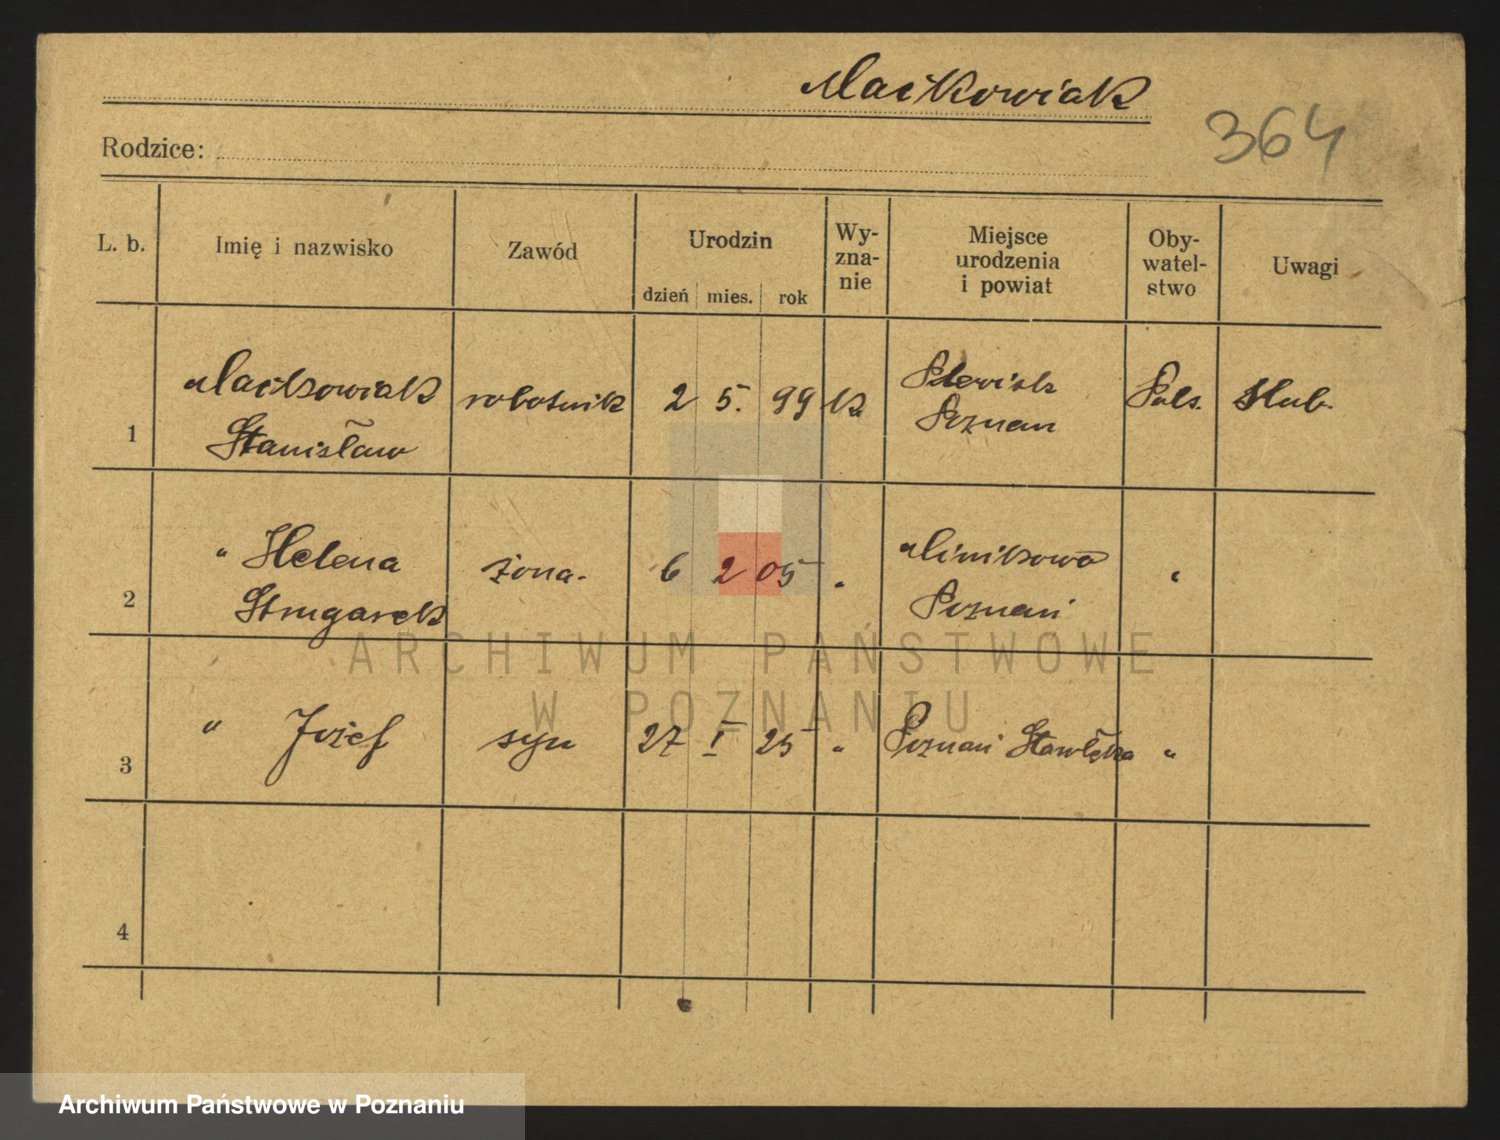 Maćkowiak
364
Rodzice:
L. b. Imię i nazwisko Zawód Urodzin Wyznanie Miejsce urodzenia i powiat Obywatelstwo Uwagi
dzień mies. rok
1 Maćkowiak Stanisław robotnik 2 5. 99 k. Plewisk Poznań Pols. ślub.
2 " Helena Strugarek żona. 6 2 05 " Minikowo Poznań "
3 " Józef syn 27 I 25 " Poznań Starołęka "
4
ARCHIWUM PAŃSTWOWE
W POZNANIU
Archiwum Państwowe w Poznaniu